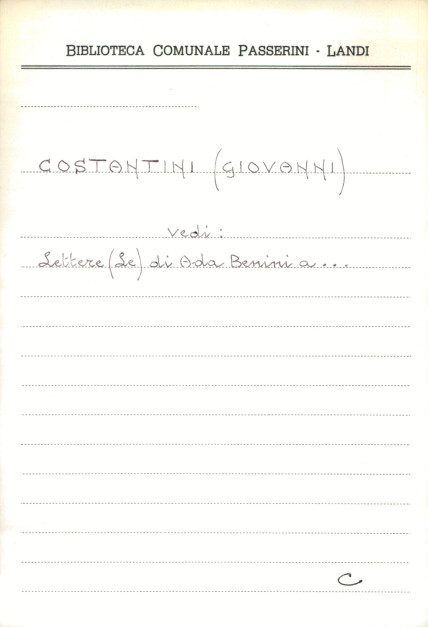 BIBLIOTECA COMUNALE PASSERINI - LANDI
COSTANTINI (GIOVANNI)
vedi:
Lettere (Le) di Ada Benini a...
C